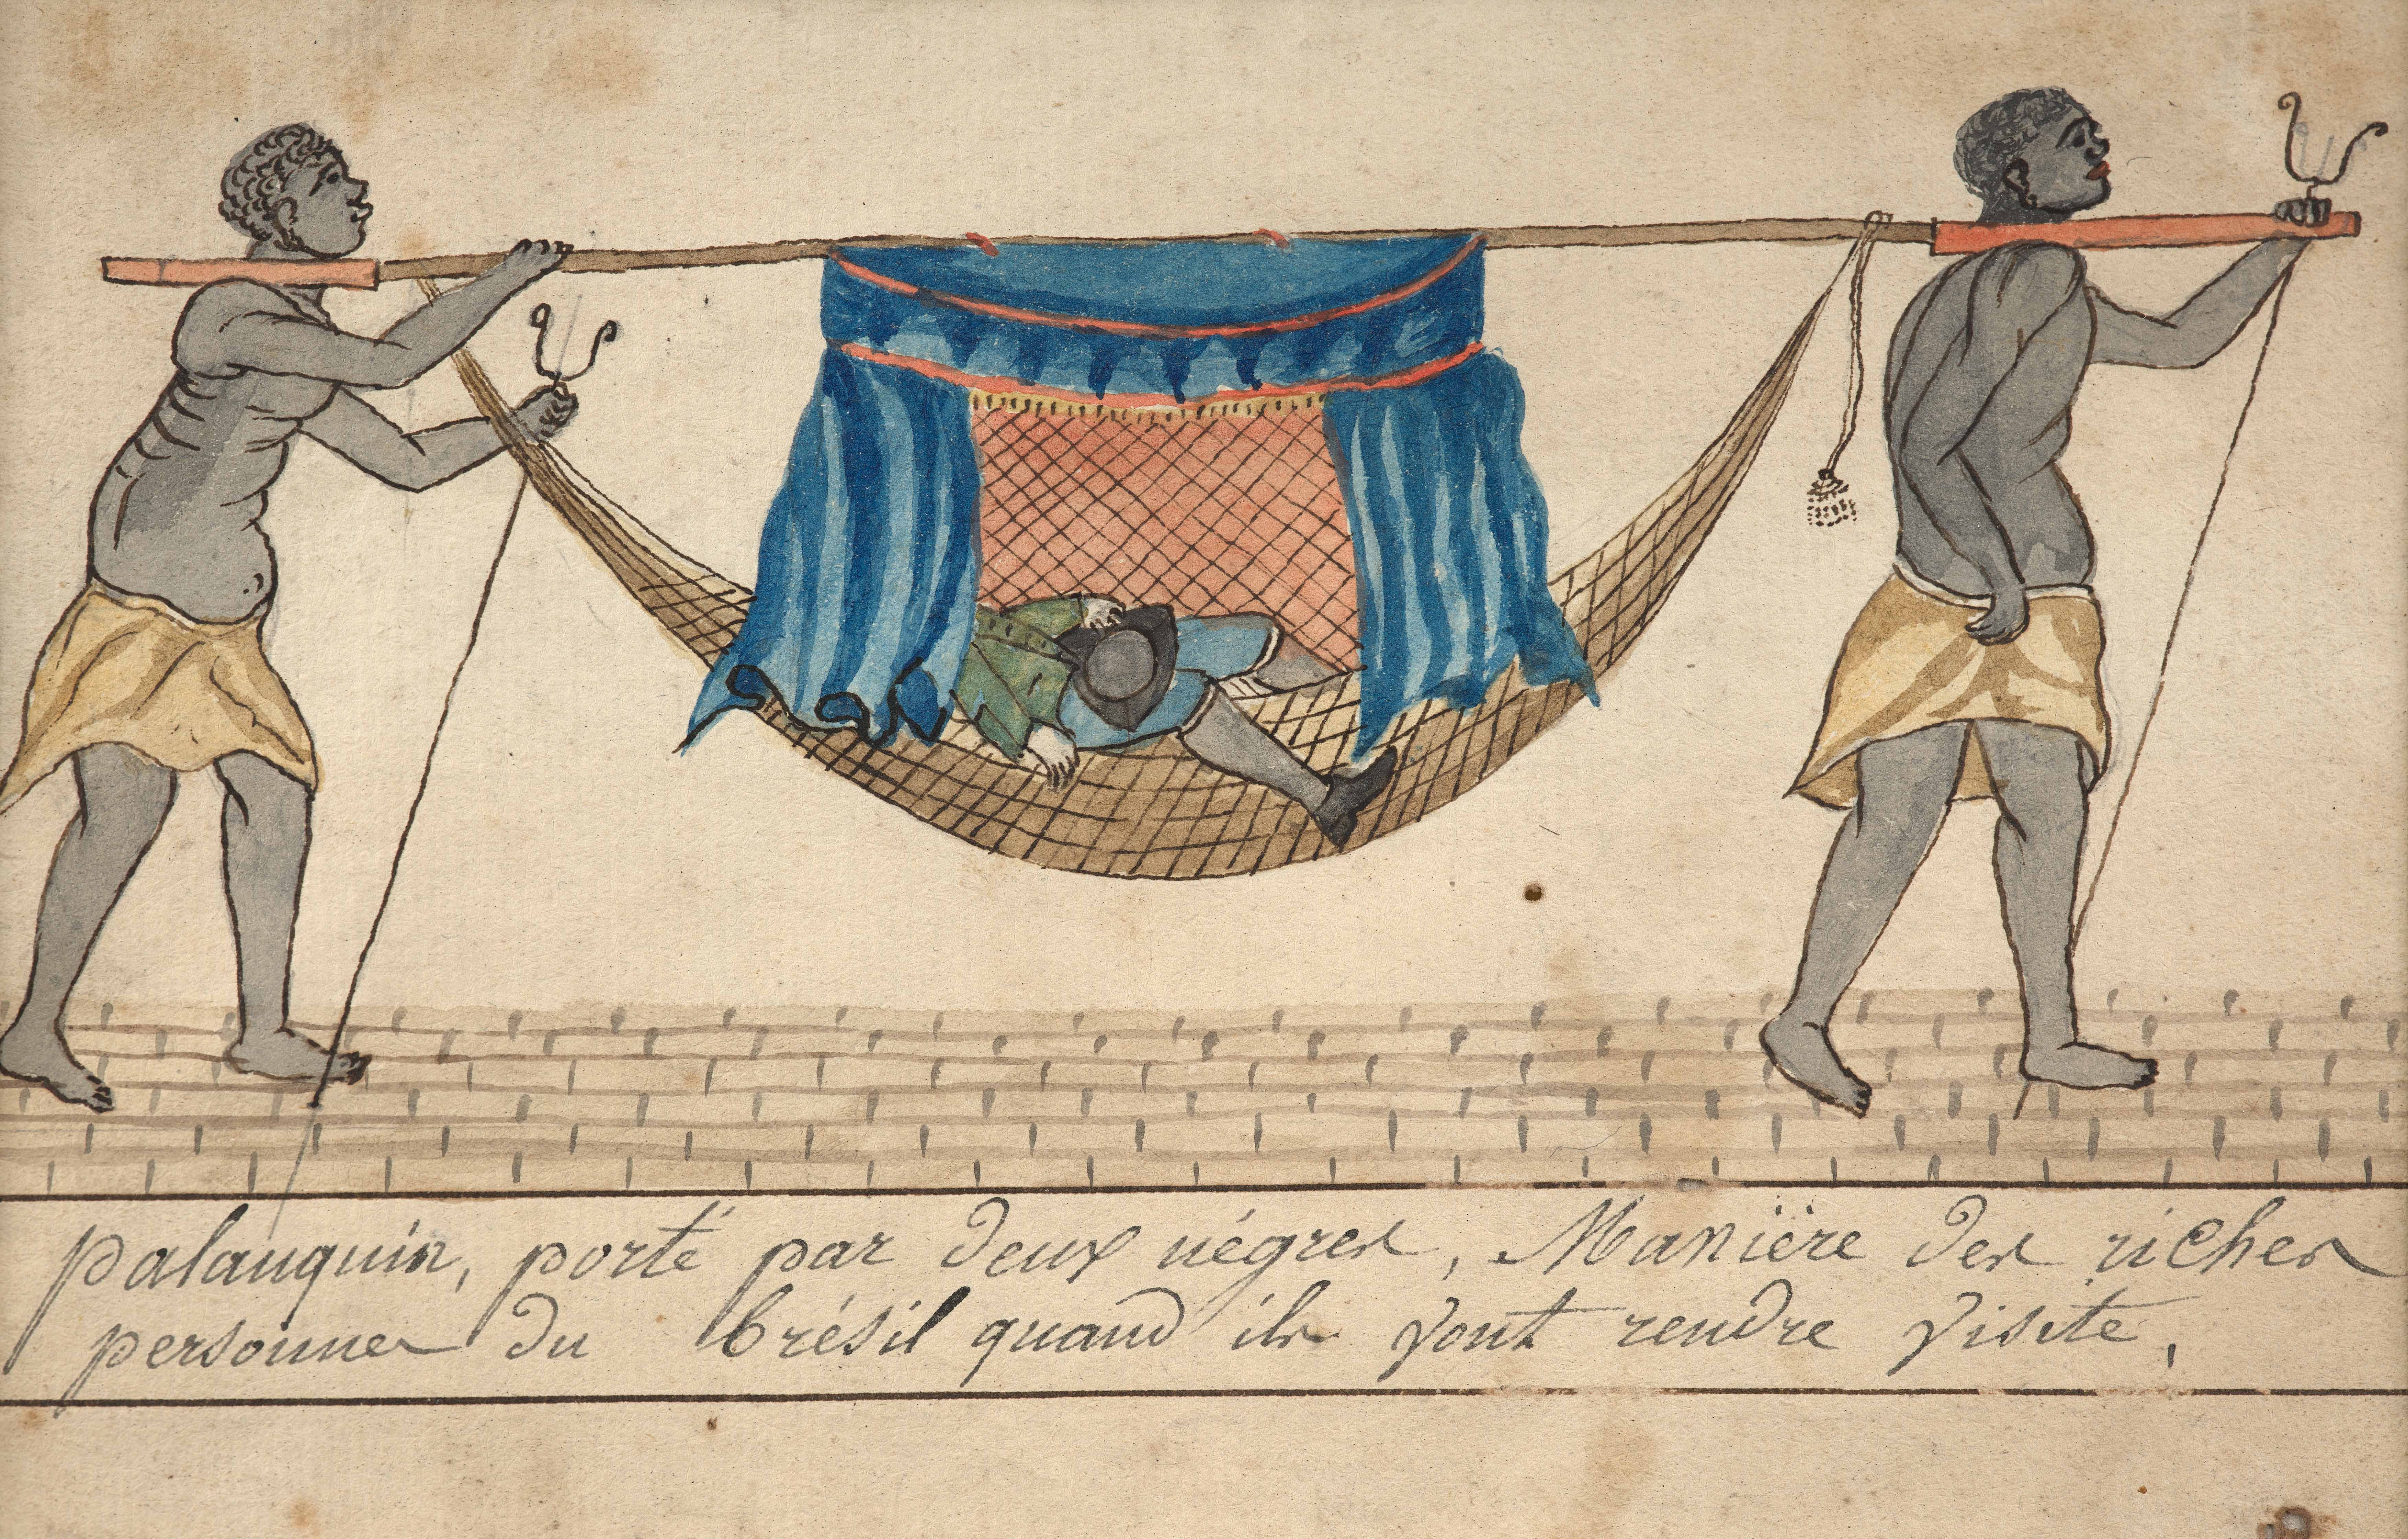 palanquin, porté par deux négres, Manière des riches
personnes du brésil quand ils vont rendre visite,